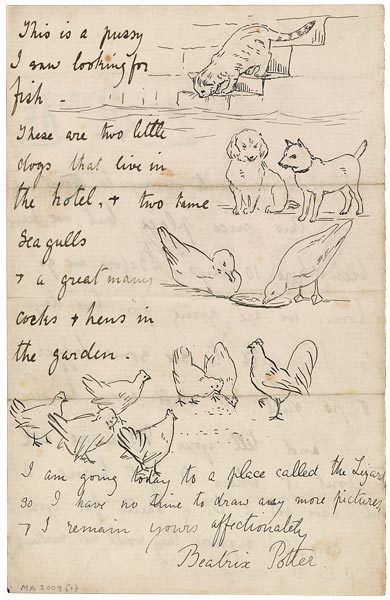 This is a pussy
I saw looking for
fish -
These are two little
dogs that live in
the hotel, + two tame
seagulls
+ a great many
cocks + hens in
the garden.
I am going today to a place called the Lizard
so I have no time to draw any more pictures
+ I remain yours affectionately
Beatrix Potter.
MA 2009 (1)